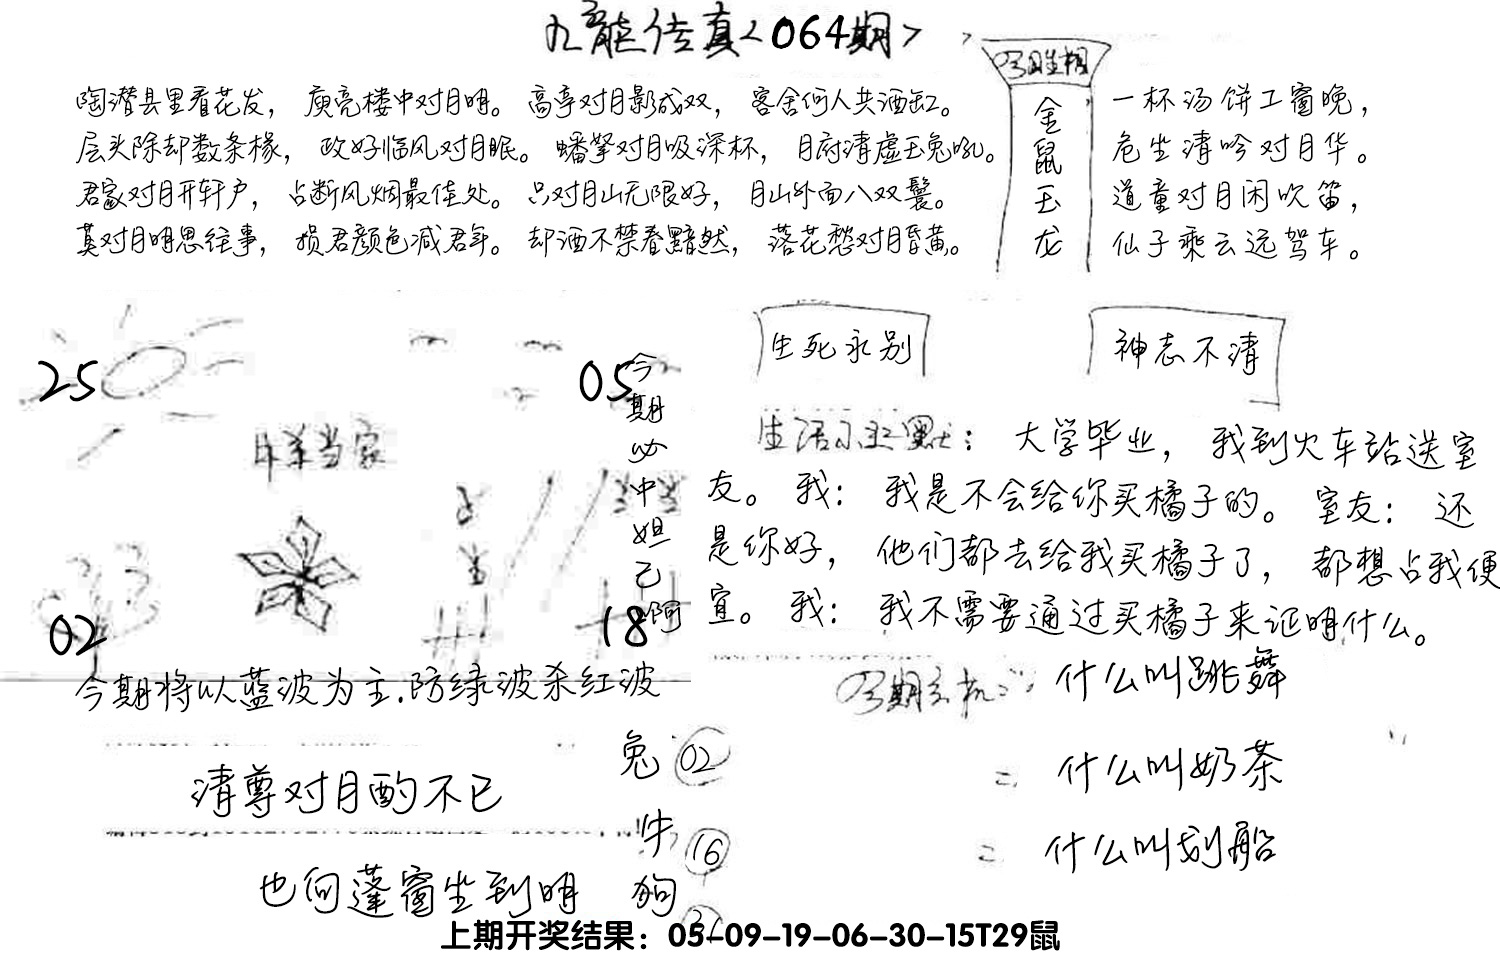 九龍传真<064期>
今期生相
金鼠玉龙
陶潜县里看花发，庾亮楼中对月明。高亭对月影成双，客舍何人共酒缸。
层头除却数条椽，政好临风对月眠。蟠拏对月吸深杯，月府清虚玉兔吼。
君家对月开轩户，占断风烟最佳处。只对月山无限好，月山外面八双鬟。
莫对月明思往事，损君颜色减君年。却酒不禁春黯然，落花愁对月昏黄。
一杯汤饼工窗晚，
危坐清吟对月华。
道童对月闲吹笛，
仙子乘云远驾车。
25
05
02
18
今期必中妲己啊
生死永别
神志不清
生活小幽默：大学毕业，我到火车站送室
友。我：我是不会给你买橘子的。室友：还
是你好，他们都去给我买橘子了，都想占我便
宜。我：我不需要通过买橘子来证明什么。
今期将以蓝波为主.防绿波杀红波
今期玄机：什么叫跳舞
什么叫奶茶
什么叫划船
清尊对月酌不已
也向蓬窗坐到明
兔 02
牛 16
狗
上期开奖结果：05-09-19-06-30-15T29鼠